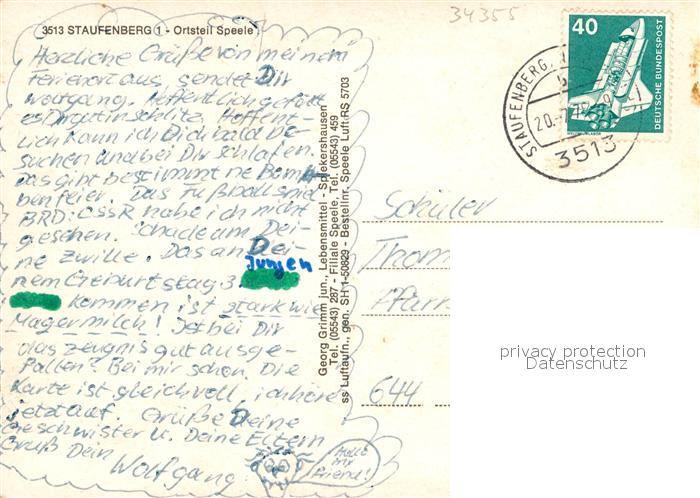 34355
3513 STAUFENBERG 1 - Ortsteil Speele
Herzliche Grüße von meinem
Ferienort aus sendet Dir
Wolfgang. Hoffentlich gefällt
es Dir gut in Schlitz. Hoffent-
lich kann ich Dich bald be-
suchen und bei Dir schlafen
Das gibt bestimmt ne Bom-
ben feier. Das Fußballspiel
BRD:CSSR habe ich nicht
gesehen. Schade um Dei-
ne Zwille. Das an Dei-
Jungen
nem Geburtstag 3
kommen ist stark wie
Magermilch! Ist bei Dir
das Zeugnis gut ausge-
fallen? Bei mir schon. Die
Karte ist gleich voll, ich höre
jetzt auf. Grüße Deine
Geschwister u. Deine Eltern
Gruß Dein
Wolfgang
Holt
my
friend!
Georg Grimm jun., Lebensmittel - Spiekershausen
Tel. (05543) 287 - Filiale Speele, Tel. (05543) 459
ss Luftaufn., gen. SH 1-50629 - Bestellnr. Speele Luft RS 5703
40
DEUTSCHE BUNDESPOST
STAUFENBERG
20.-7.
3513
Schüler
Thom
Pfarr
644
privacy protection
Datenschutz